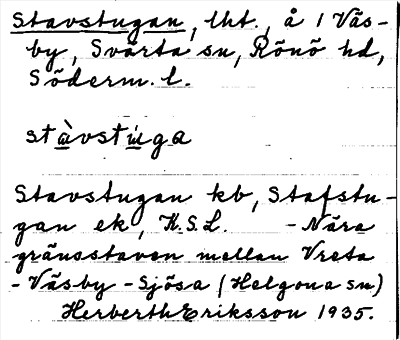 Stavstugan, lht., å 1 Väs-
by, Svärta sn, Rönö hd,
Söderm. l.
stàvstúga
Stavstugan kb, Stafstu-
gan ek, K.S.L. - Nära
gränsstaven mellan Vreta
- Väsby - Sjösa (Helgona sn)
Herberth Eriksson 1935.